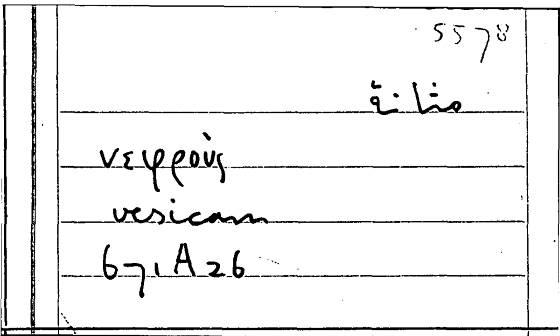 5578
مثانة
νεφροὺς
vesicam
671 A 26